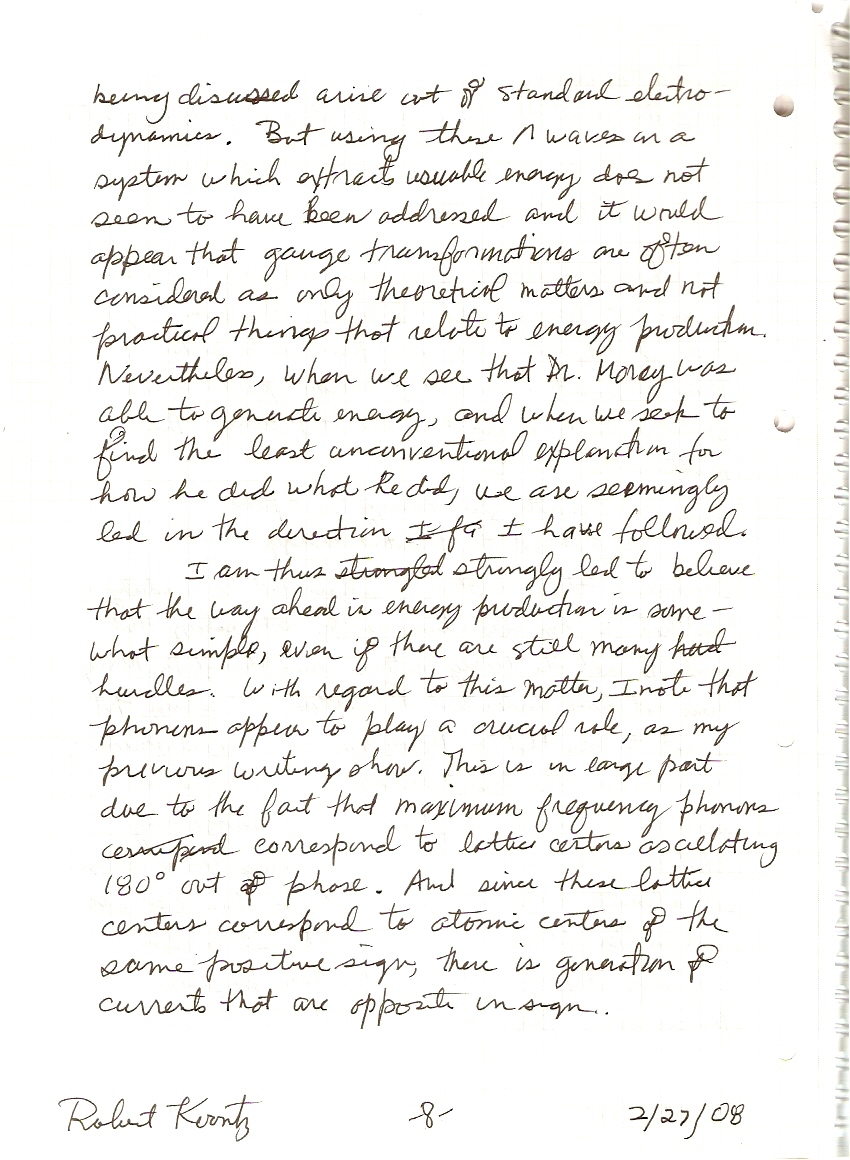 being discussed arise out of standard electro-
dynamics. But using these Λ waves in a
system which extracts usuable energy does not
seem to have been addressed and it would
appear that gauge transformations are often
considered as only theoretical matters and not
practical things that relate to energy production.
Nevertheless, when we see that Dr. Moray was
able to generate energy, and when we seek to
find the least unconventional explanation for
how he did what he did, we are seemingly
led in the direction I fa I have followed.
I am thus strongled strongly led to believe
that the way ahead in energy production is some-
what simple, even if there are still many hud
hurdles. With regard to this matter, I note that
phonons appear to play a crucial role, as my
previous writing show. This is in large part
due to the fact that maximum frequency phonons
correspond to lattice centers oscillating
180° out of phase. And since these lattice
centers correspond to atomic centers of the
same positive sign, there is generation of
currents that are opposite in sign..
Robert Koontz -8- 2/27/08